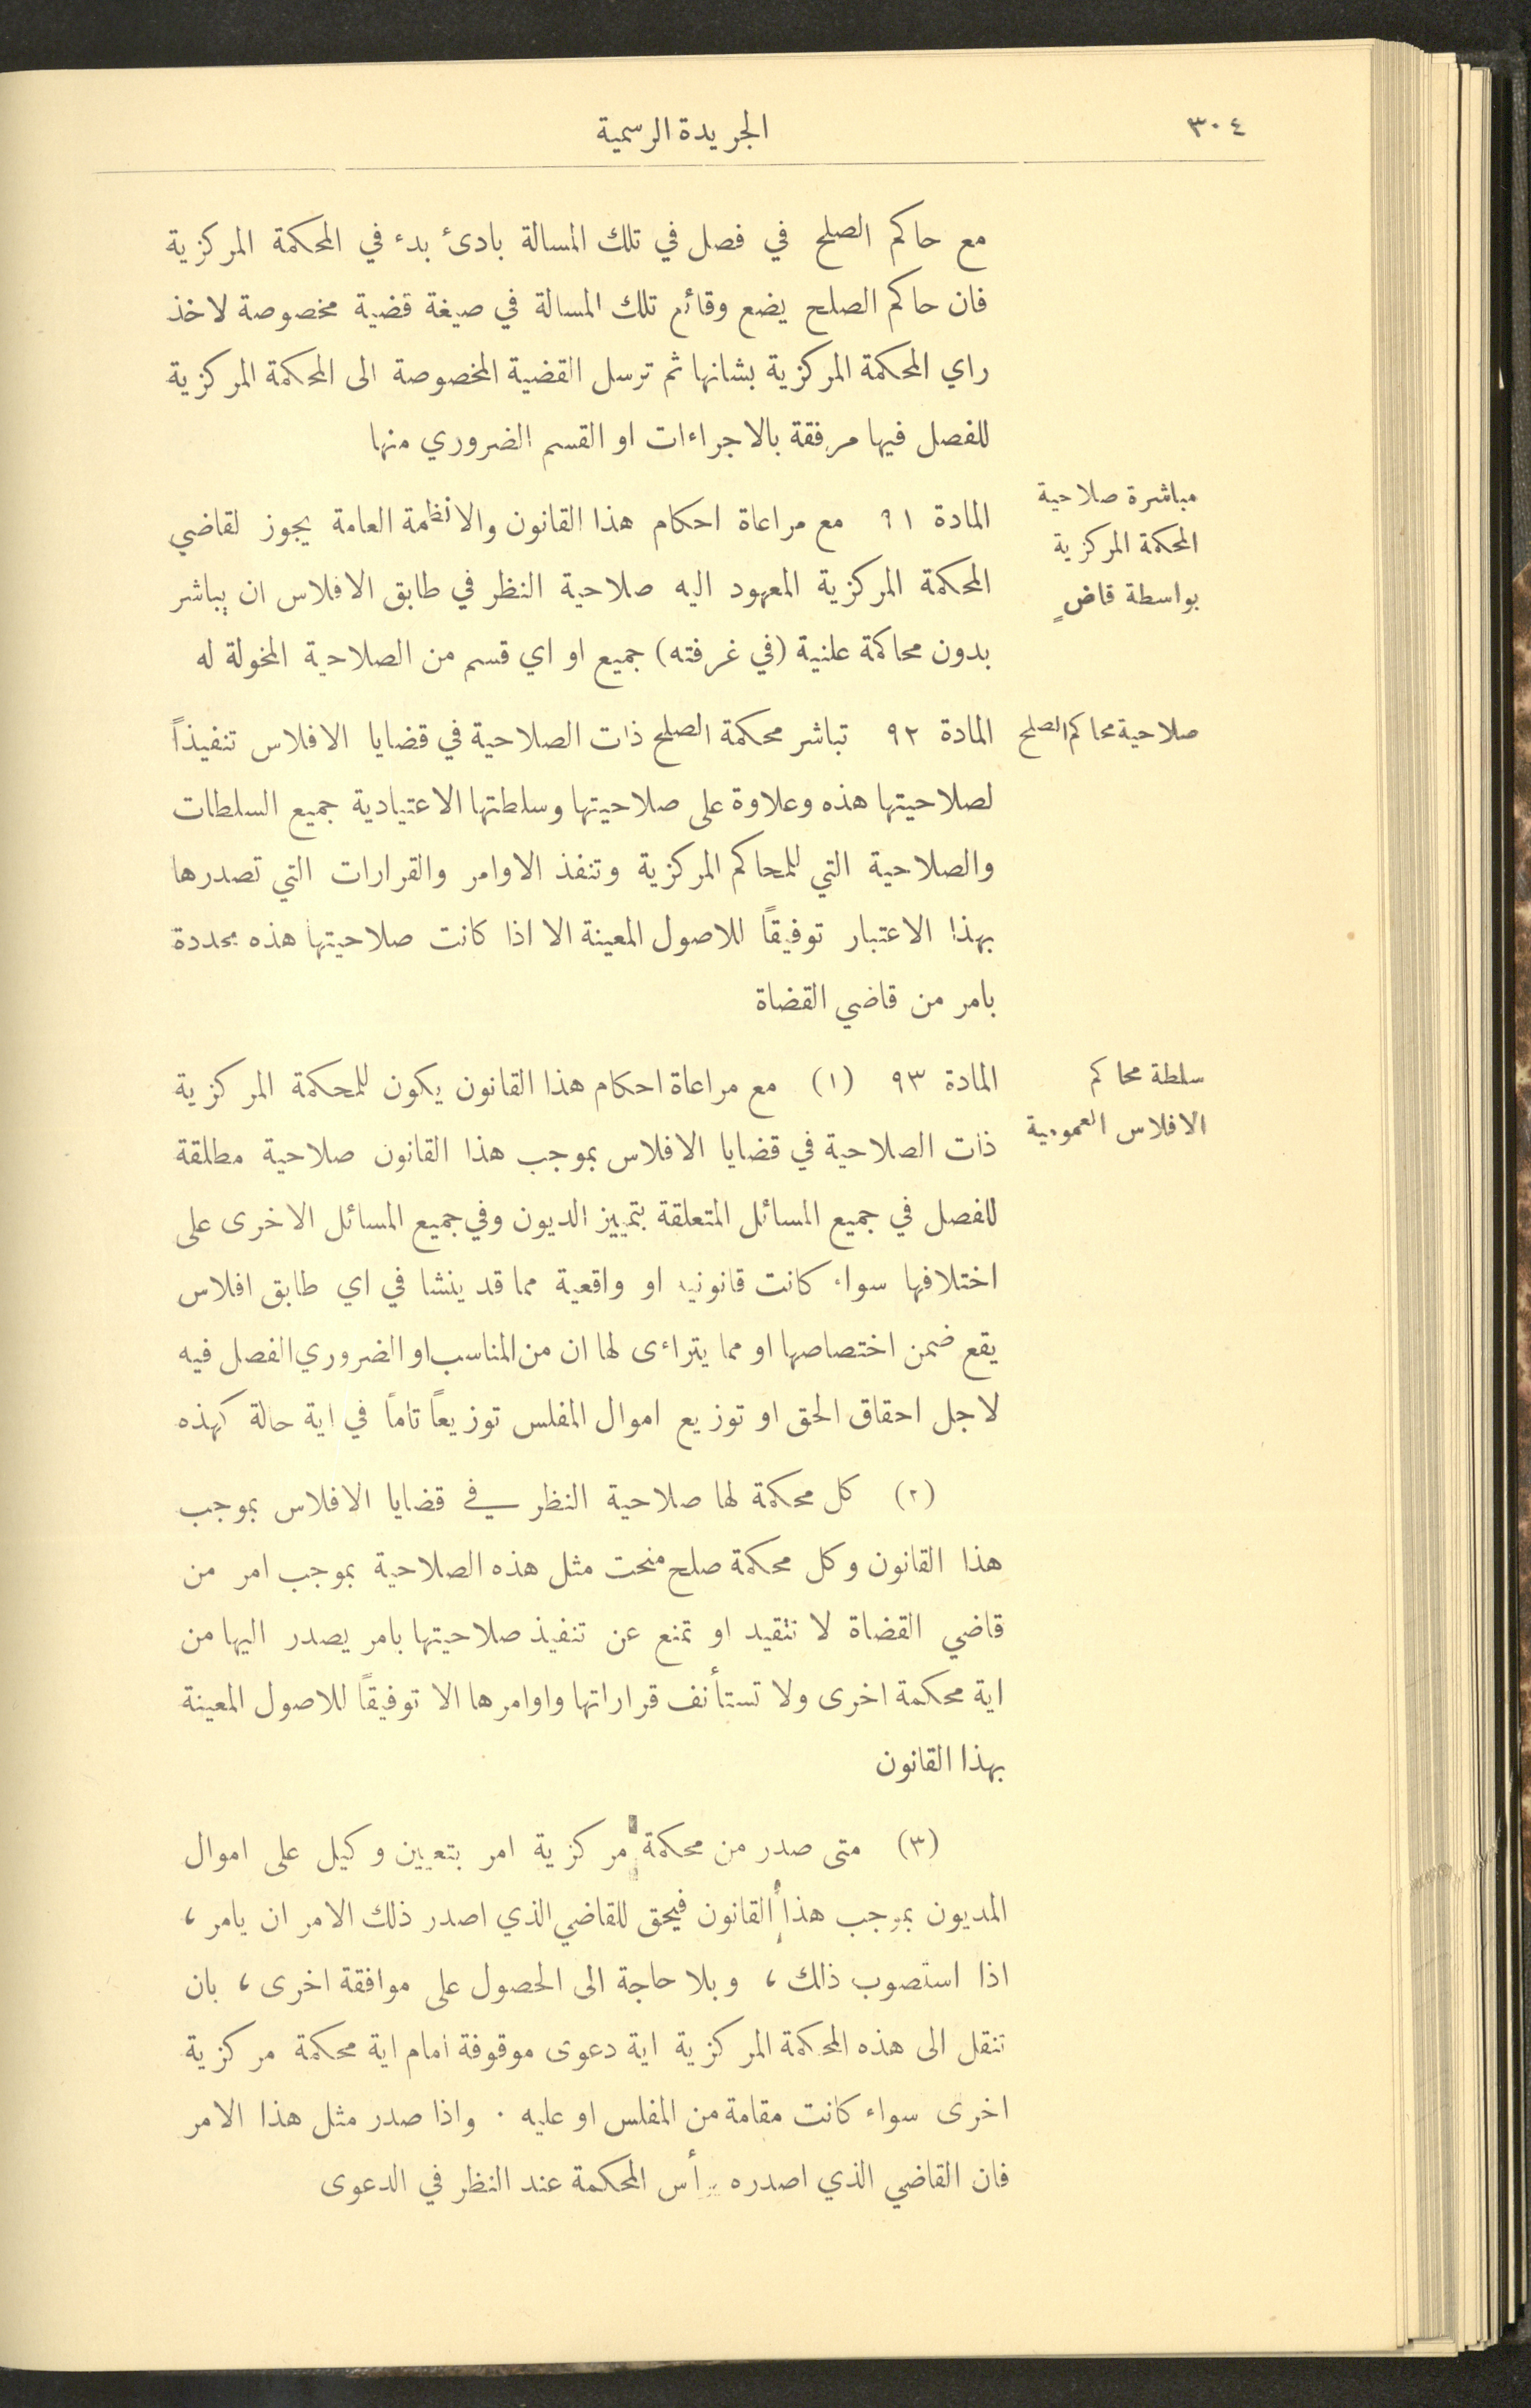 ٣٠٤
الجريدة الرسمية
مع حاكم الصلح في فصل في تلك المسالة بادئ بدء في المحكمة المركزية
فان حاكم الصلح يضع وقائع تلك المسالة في صيغة قضية مخصوصة لاخذ
راي المحكمة المركزية بشانها ثم ترسل القضية المخصوصة الى المحكمة المركزية
للفصل فيها مرفقة بالاجراءات او القسم الضروري منها
مباشرة صلاحية
المحكمة المركزية
بواسطة قاضٍ
المادة ٩١ مع مراعاة احكام هذا القانون والانظمة العامة يجوز لقاضي
المحكمة المركزية المعهود اليه صلاحية النظر في طابق الافلاس ان يباشر
بدون محاكمة علنية (في غرفته) جميع او اي قسم من الصلاحية المخولة له
صلاحية محاكم الصلح
المادة ٩٢ تباشر محكمة الصلح ذات الصلاحية في قضايا الافلاس تنفيذاً
لصلاحيتها هذه وعلاوة على صلاحيتها وسلطتها الاعتيادية جميع السلطات
والصلاحية التي للمحاكم المركزية وتنفذ الاوامر والقرارات التي تصدرها
بهذا الاعتبار توفيقاً للاصول المعينة الا اذا كانت صلاحيتها هذه محددة
بامر من قاضي القضاة
سلطة محاكم
الافلاس العمومية
المادة ٩٣ (١) مع مراعاة احكام هذا القانون يكون للمحكمة المركزية
ذات الصلاحية في قضايا الافلاس بموجب هذا القانون صلاحية مطلقة
للفصل في جميع المسائل المتعلقة بتمييز الديون وفي جميع المسائل الاخرى على
اختلافها سواء كانت قانونيه او واقعية مما قد ينشا في اي طابق افلاس
يقع ضمن اختصاصها او مما يتراءى لها ان من المناسب او الضروري الفصل فيه
لاجل احقاق الحق او توزيع اموال المفلس توزيعاً تاماً في اية حالة كهذه
(٢) كل محكمة لها صلاحية النظر في قضايا الافلاس بموجب
هذا القانون وكل محكمة صلح منحت مثل هذه الصلاحية بموجب امر من
قاضي القضاة لا تتقيد او تمنع عن تنفيذ صلاحيتها بامر يصدر اليها من
اية محكمة اخرى ولا تستأنف قراراتها واوامرها الا توفيقاً للاصول المعينة
بهذا القانون
(٣) متى صدر من محكمة مركزية امر بتعيين وكيل على اموال
المديون بموجب هذا القانون فيحق للقاضي الذي اصدر ذلك الامر ان يامر ،
اذا استصوب ذلك ، وبلا حاجة الى الحصول على موافقة اخرى ، بان
تنقل الى هذه المحكمة المركزية اية دعوى موقوفة امام اية محكمة مركزية
اخرى سواء كانت مقامة من المفلس او عليه . واذا صدر مثل هذا الامر
فان القاضي الذي اصدره يرأس المحكمة عند النظر في الدعوى